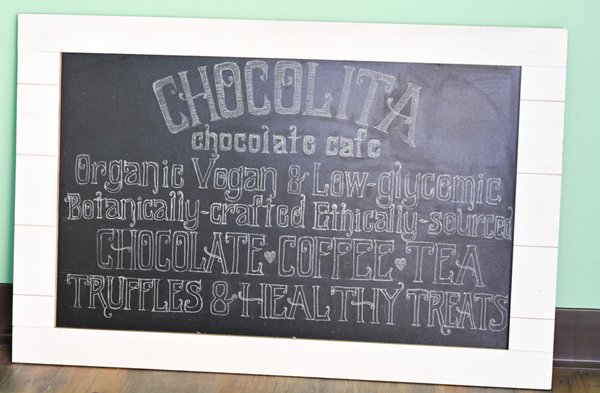 CHOCOLITA
chocolate cafe
Organic Vegan & Low-glycemic
Botanically-crafted Ethically-sourced
CHOCOLATE ♥ COFFEE ♥ TEA
TRUFFLES & HEALTHY TREATS